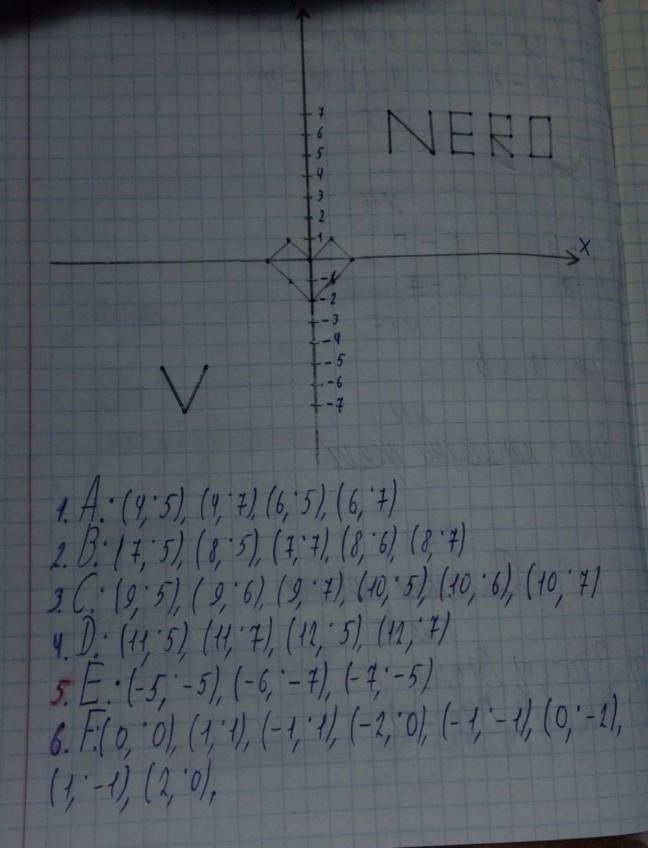 7
6
5
4
3
2
1
-1
-2
-3
-4
-5
-6
-7
NERO
X
V
1. A: (4;5), (4;7) (6;5), (6;7)
2. B: (7;5), (8;5), (7;7), (8;6), (8;7)
3. C: (9;5), (9;6) (9;7), (10;5), (10;6), (10;7)
4. D: (11;5), (11;7), (12;5), (12;7)
5. E: (-5;-5), (-6;-7), (-7;-5)
6. F: (0;0), (1;1), (-1;1), (-2;0), (-1;-1), (0;-2),
(1;-1), (2;0),